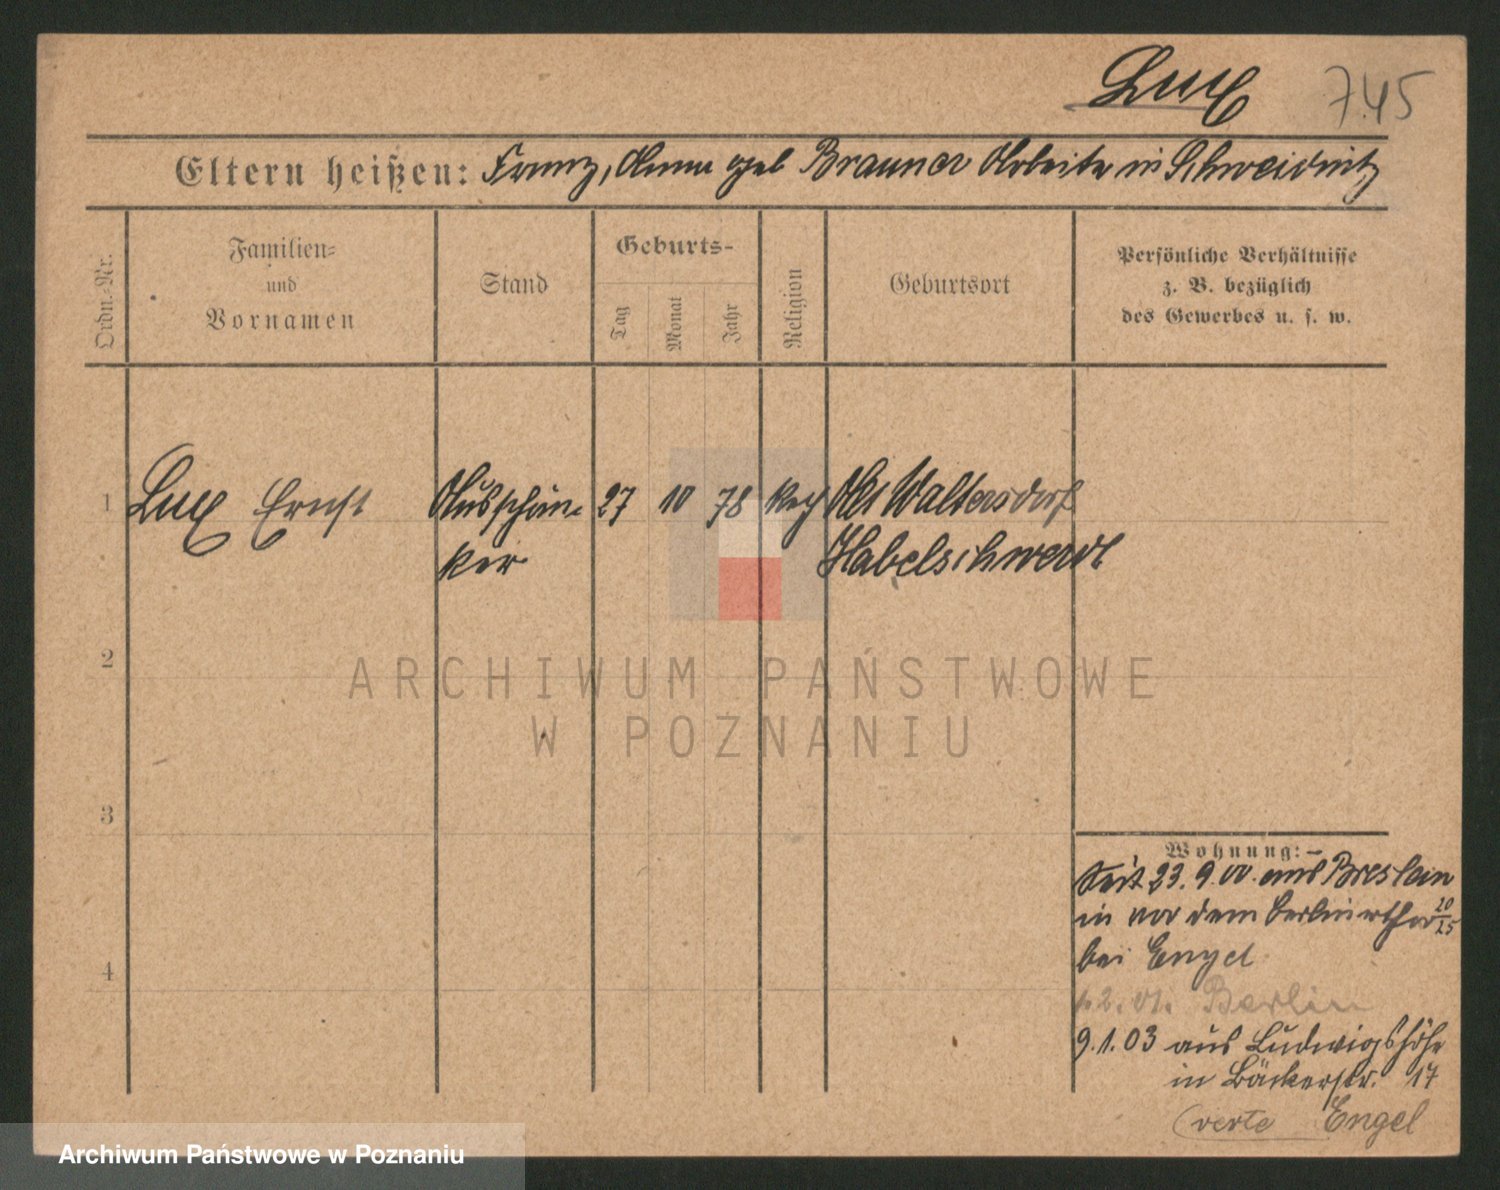 Lux 745
Eltern heißen: Franz, Anna geb Brauner Arbeiter in Schweidnitz
Ordn.-Nr.
Familien-
und
Vornamen
Stand
Geburts-
Tag
Monat
Jahr
Religion
Geburtsort
Persönliche Verhältnisse
z. B. bezüglich
des Gewerbes u. s. w.
1 Lux Ernst Ausschän- 27 10 78 kath Alt Waltersdorf
ker Habelschwerdt
ARCHIWUM PAŃSTWOWE
W POZNANIU
2
3
4
Wohnung:
Seit 23.9.00. aus Breslau
in vor dem Berlinerthor 20/25
bei Engel
2. 01. Berlin
9.1.03 aus Ludwigshöhe
in Bäckerstr. 17
(verte Engel
Archiwum Państwowe w Poznaniu